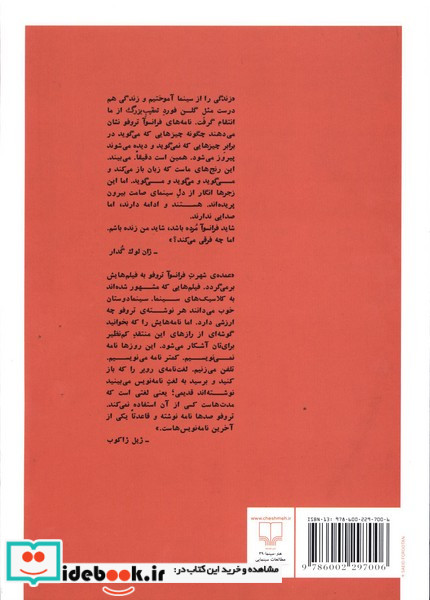 «زندگی را از سینما آموختیم و زندگی هم
درست مثل گلن فوردِ تعقیب‌بزرگ از ما
انتقام گرفت. نامه‌های فرانسوآ تروفو نشان
می‌دهند چگونه چیزهایی که می‌گوید در
برابر چیزهایی که نمی‌گوید و دیده می‌شوند
پیروز می‌شود. همین است دقیقاً. می‌بیند.
این رنج‌های ماست که زبان باز می‌کند و
می‌گوید و می‌گوید و می‌گوید. اما این
زجرها انگار از دل سینمای صامت بیرون
پریده‌اند. هستند و ادامه دارند، اما
صدایی ندارند.
شاید فرانسوآ مُرده باشد، شاید من زنده باشم.
اما چه فرقی می‌کند؟»
ـ ژان لوک گُدار
«عمده‌ی شهرتِ فرانسوآ تروفو به فیلم‌هایش
برمی‌گردد. فیلم‌هایی که مشهور شده‌اند
به کلاسیک‌های سینما. سینمادوستان
خوب می‌دانند هر نوشته‌ی تروفو چه
ارزشی دارد. اما نامه‌هایش را که بخوانید
گوشه‌ای از رازهای این منتقدِ کم‌نظیر
برای‌تان آشکار می‌شود. این روزها نامه
نمی‌نویسیم. کمتر نامه می‌نویسیم.
تلفن می‌زنیم. لغت‌نامه‌ی روبر را که باز
کنید و برسید به لغتِ نامه‌نویس می‌بینید
نوشته‌اند قدیمی؛ یعنی لغتی است که
مدت‌هاست کسی از آن استفاده نمی‌کند.
تروفو صدها نامه نوشته و قاعدتاً یکی از
آخرین نامه‌نویس‌هاست.»
ـ ژیل ژاکوب
www.cheshmeh.ir
هنر سینما ۲۹
مطالعات سینمایی
ISBN-13: 978-600-229-700-6
9 786002 297006
مشاهده و خرید این کتاب در:
idebook.ir